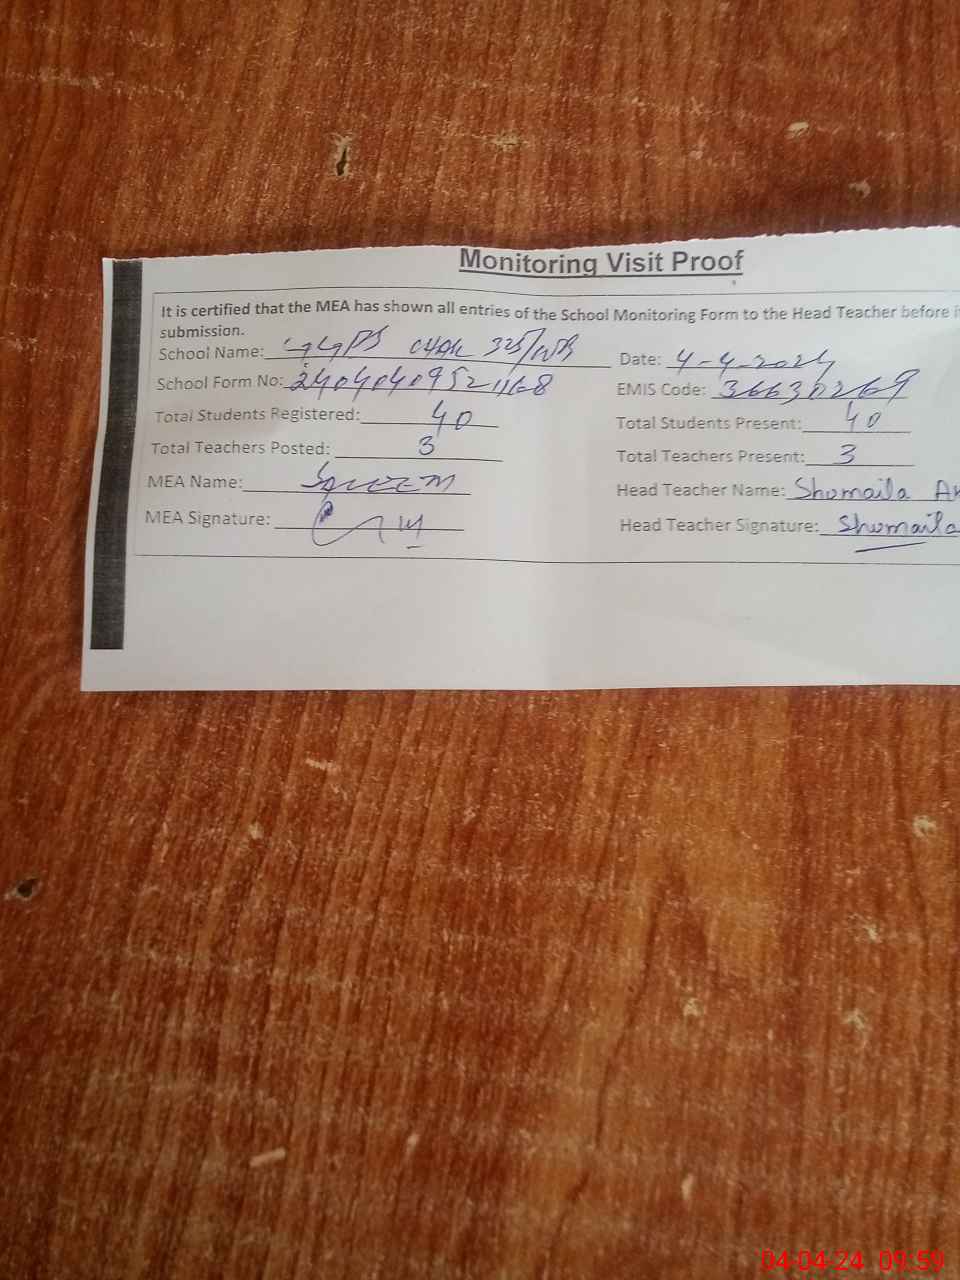 Monitoring Visit Proof
It is certified that the MEA has shown all entries of the School Monitoring Form to the Head Teacher before
submission.
School Name: GGPS CHAK 325/WB Date: 4-4-2024
School Form No: 24040409521168 EMIS Code: 36630269
Total Students Registered: 40 Total Students Present: 40
Total Teachers Posted: 3 Total Teachers Present: 3
MEA Name: Head Teacher Name: Shumaila
MEA Signature: Head Teacher Signature: Shumaila
04-04-24 09:59